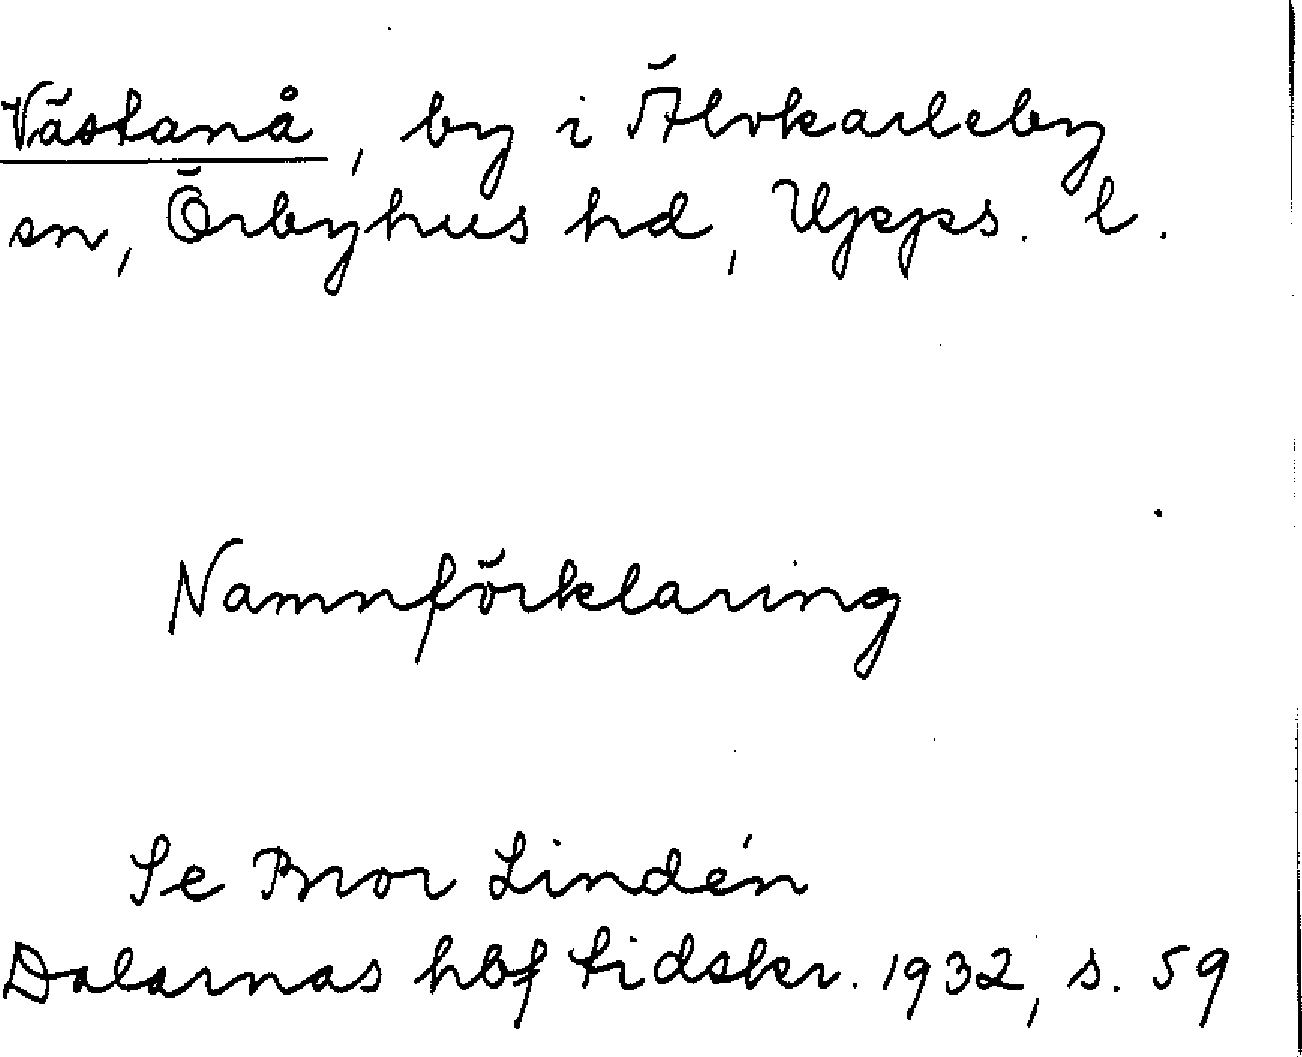 Västanå, by i Älvkarleby
sn, Örbyhus hd, Upps. l.
Namnförklaring
Se Bror Lindén
Dalarnas hbf tidskr. 1932, s. 59